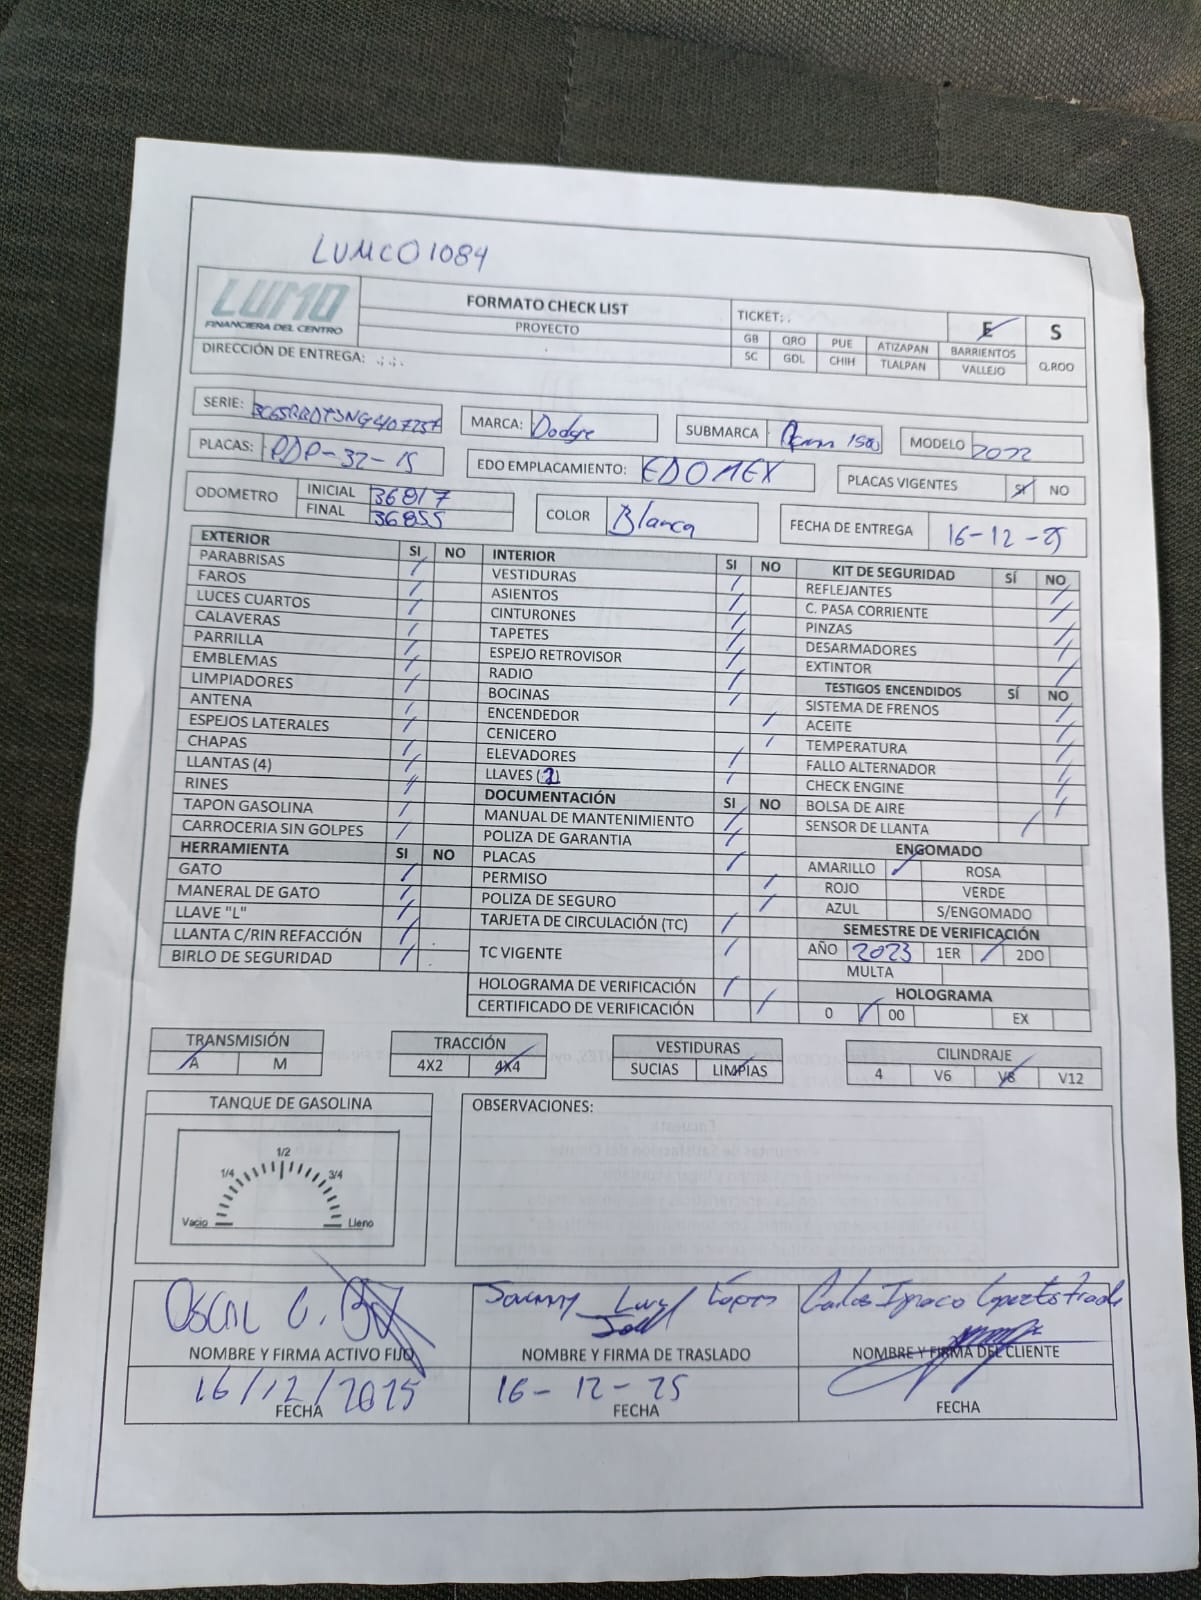 LUMCO1084
LUMO
FINANCIERA DEL CENTRO
FORMATO CHECK LIST
PROYECTO
TICKET: .
E S
GB QRO PUE ATIZAPAN BARRIENTOS
SC GDL CHIH TLALPAN VALLEJO Q.ROO
DIRECCIÓN DE ENTREGA: .;.;.
SERIE:
MARCA: Dodge
SUBMARCA 1500
MODELO 2022
PLACAS: PDP-32-15
EDO EMPLACAMIENTO: EDOMEX
PLACAS VIGENTES SI NO
ODOMETRO INICIAL 36817
FINAL 36855
COLOR Blanca
FECHA DE ENTREGA 16-12-25
EXTERIOR SI NO
PARABRISAS
FAROS
LUCES CUARTOS
CALAVERAS
PARRILLA
EMBLEMAS
LIMPIADORES
ANTENA
ESPEJOS LATERALES
CHAPAS
LLANTAS (4)
RINES
TAPON GASOLINA
CARROCERIA SIN GOLPES
HERRAMIENTA SI NO
GATO
MANERAL DE GATO
LLAVE "L"
LLANTA C/RIN REFACCIÓN
BIRLO DE SEGURIDAD
INTERIOR SI NO
VESTIDURAS
ASIENTOS
CINTURONES
TAPETES
ESPEJO RETROVISOR
RADIO
BOCINAS
ENCENDEDOR
CENICERO
ELEVADORES
LLAVES (2)
DOCUMENTACIÓN SI NO
MANUAL DE MANTENIMIENTO
POLIZA DE GARANTIA
PLACAS
PERMISO
POLIZA DE SEGURO
TARJETA DE CIRCULACIÓN (TC)
TC VIGENTE
HOLOGRAMA DE VERIFICACIÓN
CERTIFICADO DE VERIFICACIÓN
KIT DE SEGURIDAD SÍ NO
REFLEJANTES
C. PASA CORRIENTE
PINZAS
DESARMADORES
EXTINTOR
TESTIGOS ENCENDIDOS SÍ NO
SISTEMA DE FRENOS
ACEITE
TEMPERATURA
FALLO ALTERNADOR
CHECK ENGINE
BOLSA DE AIRE
SENSOR DE LLANTA
ENGOMADO
AMARILLO ROSA
ROJO VERDE
AZUL S/ENGOMADO
SEMESTRE DE VERIFICACIÓN
AÑO 2023 1ER 2DO
MULTA
HOLOGRAMA
0 00 EX
TRANSMISIÓN
A M
TRACCIÓN
4X2 4X4
VESTIDURAS
SUCIAS LIMPIAS
CILINDRAJE
4 V6 V8 V12
TANQUE DE GASOLINA
1/2
1/4 3/4
Vacio Lleno
OBSERVACIONES:
OSCAR C.
NOMBRE Y FIRMA ACTIVO FIJO
16/12/2025
FECHA
López
NOMBRE Y FIRMA DE TRASLADO
16-12-25
FECHA
Carlos
NOMBRE Y FIRMA DEL CLIENTE
FECHA